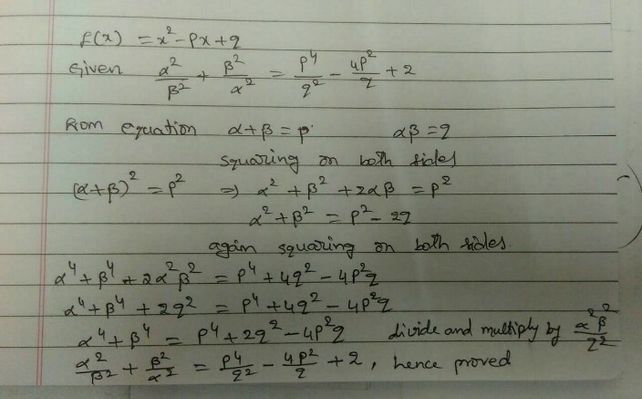 f(x) = x² - px + q
Given α²/β² + β²/α² = p⁴/q² - 4p²/q + 2
from equation α+β = p. αβ = q
squaring on both sides
(α+β)² = p² ⇒ α² + β² + 2αβ = p²
α² + β² = p² - 2q
again squaring on both sides
α⁴ + β⁴ + 2α²β² = p⁴ + 4q² - 4p²q
α⁴ + β⁴ + 2q² = p⁴ + 4q² - 4p²q
α⁴ + β⁴ = p⁴ + 2q² - 4p²q divide and multiply by α²β²/q²
α²/β² + β²/α² = p⁴/q² - 4p²/q + 2, hence proved